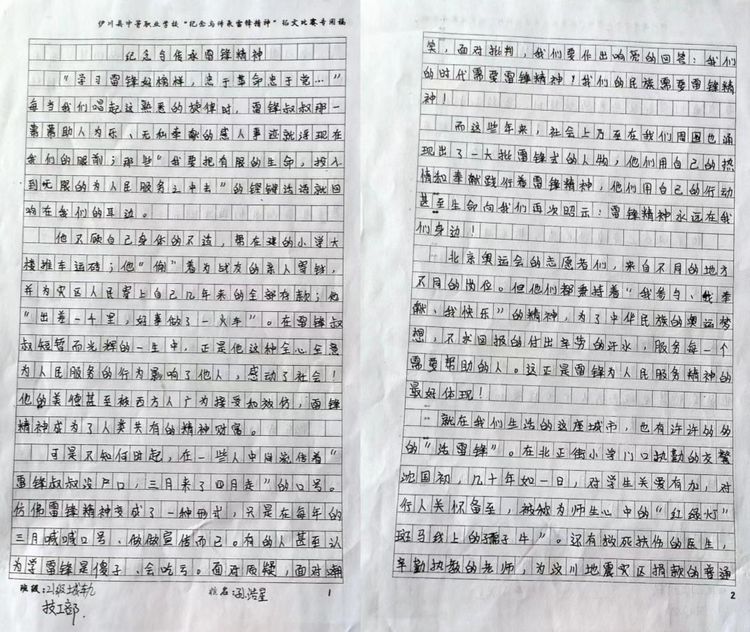 伊川县中等职业学校“纪念与传承雷锋精神”征文比赛专用稿
纪念与传承雷锋精神
“学习雷锋好榜样，忠于革命忠于党…”
每当我们唱起这熟悉的旋律时，雷锋叔叔那一
幕幕助人为乐、无私奉献的感人事迹就浮现在
我们的眼前；那些“我要把有限的生命，投入
到无限的为人民服务之中去”的铿锵话语就回
响在我们的耳边。
他不顾自己身体的不适，帮在建的小学大
楼推车运砖；他“偷”着为战友的亲人寄钱，
并为灾区人民寄上自己几年来的全部存款；他
“出差一千里，好事做了一火车”。在雷锋叔
叔短暂而光辉的一生中，正是他这种全心全意
为人民服务的行为影响了他人，感动了社会！
他的美德甚至被西方人广为接受和效仿，雷锋
精神成为了人类共有的精神财富。
可是不知何时起，在一些人中间流传着“
雷锋叔叔没户口，三月来了四月走”的口号。
仿佛雷锋精神变成了一种形式，只是在每年的
三月喊喊口号、做做宣传而已。有的人甚至认
为学雷锋是傻子、会吃亏。面对质疑，面对嘲
班级：21级城轨
技工部.
姓名：
1
笑，面对批判，我们要作出响亮的回答：我们
的时代需要雷锋精神！我们的民族需要雷锋精
神！
而这些年来，社会上乃至在我们周围也涌
现出了一大批雷锋式的人物，他们用自己的热
情和奉献践行着雷锋精神，他们用自己的行动
甚至生命向我们再次昭示：雷锋精神永远在我
们身边！
北京奥运会的志愿者们，来自不同的地方
不同的岗位。但他们都秉持着“我参与、我奉
献、我快乐”的精神，为了中华民族的奥运梦
想，不求回报的付出辛劳的汗水，服务每一个
需要帮助的人。这正是雷锋为人民服务精神的
最好体现！
就在我们生活的这座城市，也有许许多多
的“活雷锋”。在北正街小学门口执勤的交警
沈国初，几十年如一日，对学生关爱有加，对
行人关怀备至，被被为师生心中的“红绿灯”
斑马线上的孺子牛”。还有救死扶伤的医生，
辛勤执教的老师，为汶川地震灾区捐款的普通
2